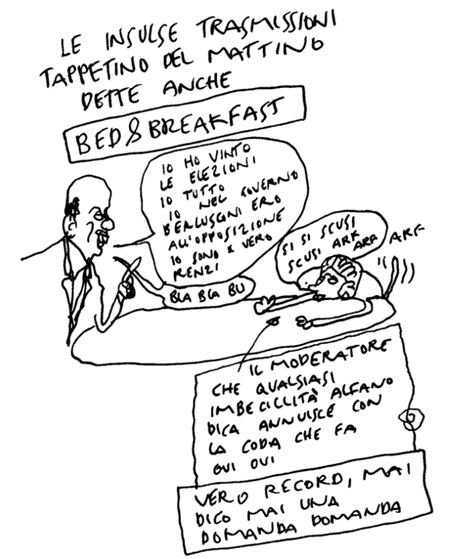 LE INSULSE TRASMISSIONI
TAPPETINO DEL MATTINO
DETTE ANCHE
BED&BREAKFAST
IO HO VINTO
LE ELEZIONI
IO TUTTO
IO NEL GOVERNO
BERLUSCNI ERO
ALL'OPPOSIZIONE
IO SONO X VERO
RENZI
BLA BLA BLA
SI SI SCUSI
SCUSI ARF ARF ARF
IL MODERATORE
CHE QUALSIASI
IMBECILLITÀ ALFANO
DICA ANNUISCE CON
LA CODA CHE FA
QUI QUI
VERO RECORD, MAI
DICO MAI UNA
DOMANDA DOMANDA